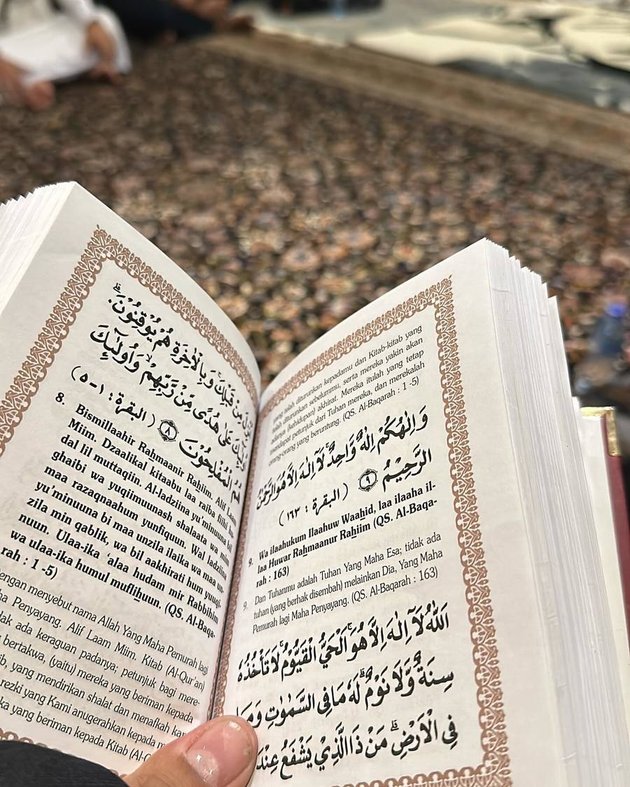 مِنْ قَبْلِكَ وَبِالْاٰخِرَةِ هُمْ يُوْقِنُوْنَۗ.
عَلٰى هُدًى مِّنْ رَّبِّهِمْ وَاُولٰۤىِٕكَ
هُمُ الْمُفْلِحُوْنَ ٨ (البقرة: ١-٥)
8. Bismillaahir Rahmaanir Rahiim. Alif Laam
Miim. Dzaalikal kitaabu laa raiba fiihi hu-
dal lil muttaqiin. Al-ladziina yu'minuuna bil
ghaibi wa yuqiimuunash shalaata wa mim-
maa razaqnaahum yunfiquun. Wal ladziina
yu'minuuna bi maa unzila ilaika wa maa un-
zila min qablik, wa bil aakhirati hum yuuqi-
nuun. Ulaa-ika 'alaa hudan mir Rabbihim
wa ulaa-ika humul muflihuun. (QS. Al-Baqa-
rah : 1-5)
dengan menyebut nama Allah Yang Maha Pemurah lagi
Maha Penyayang. Alif Laam Miim. Kitab (Al-Qur'an)
tidak ada keraguan padanya; petunjuk bagi mere-
bertakwa, (yaitu) mereka yang beriman kepada
yang mendirikan shalat dan menafkah kan
rezki yang Kami anugerahkan kepada
yang beriman kepada Kitab
yang telah diturunkan kepadamu dan Kitab-kitab yang
telah diturunkan sebelummu, serta mereka yakin akan
adanya (kehidupan) akhirat. Mereka itulah yang tetap
mendapat petunjuk dari Tuhan mereka, dan merekalah
orang-orang yang beruntung. (QS. Al-Baqarah : 1 -5)
وَاِلٰهُكُمْ اِلٰهٌ وَّاحِدٌ لَآ اِلٰهَ اِلَّا هُوَ الرَّحْمٰنُ
الرَّحِيْمُ ٩ (البقرة : ١٦٣)
9. Wa ilaahukum Ilaahuw Waahid, laa ilaaha il-
laa Huwar Rahmaanur Rahiim (QS. Al-Baqa-
rah : 163)
9. Dan Tuhanmu adalah Tuhan Yang Maha Esa; tidak ada
tuhan (yang berhak disembah) melainkan Dia. Yang Maha
Pemurah lagi Maha Penyayang. (QS. Al-Baqarah : 163)
اَللهُ لَآ اِلٰهَ اِلَّا هُوَ اَلْحَيُّ الْقَيُّوْمُ لَا تَأْخُذُهٗ
سِنَةٌ وَّلَا نَوْمٌ لَهٗ مَا فِى السَّمٰوٰتِ وَمَا
فِى الْاَرْضِ مَنْ ذَا الَّذِيْ يَشْفَعُ عِنْدَ